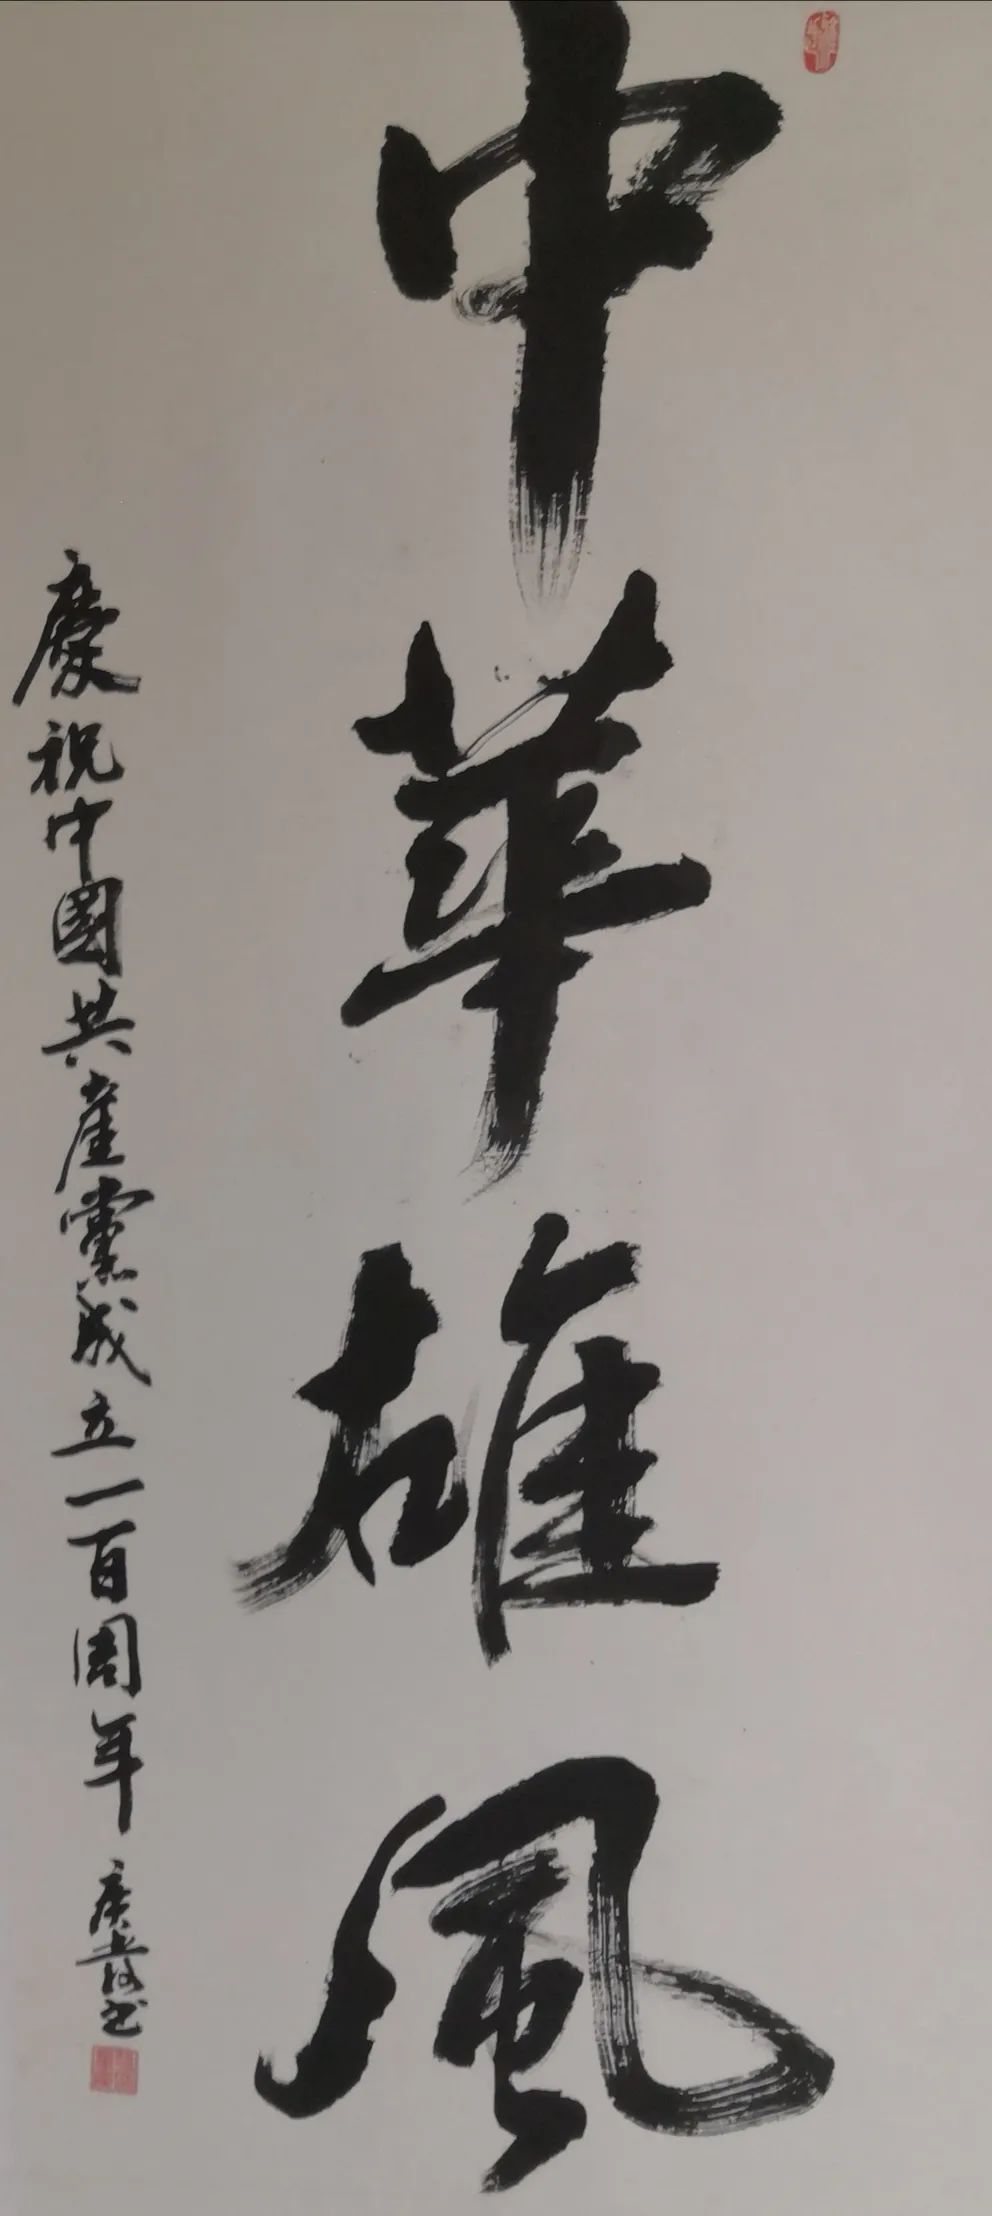 中華雄風
慶祝中國共產黨成立一百周年